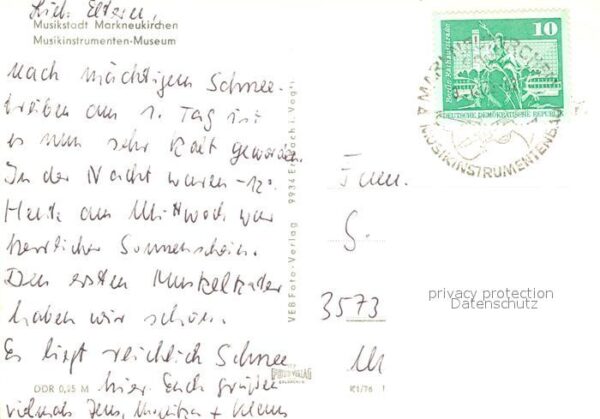 Lieb. Eltern,
Musikstadt Markneukirchen
Musikinstrumenten-Museum
Nach mächtigem Schnee-
treiben am 1. Tag ist
es nun sehr kalt geworden.
In der Nacht waren -12°.
Heute am Mittwoch war
herrlicher Sonnenschein.
Den ersten Muskelkater
haben wir schon.
Es liegt reichlich Schnee
hier. Euch grüßen
vielmals Jens, + Klaus
DDR 0,25 M
VEB Foto-Verlag 9934 Erlbach i. Vogtl.
10
DEUTSCHE DEMOKRATISCHE REPUBLIK
MUSIKINSTRUMENTENBAU
Fam.
G.
3573
privacy protection
Datenschutz
K1/76